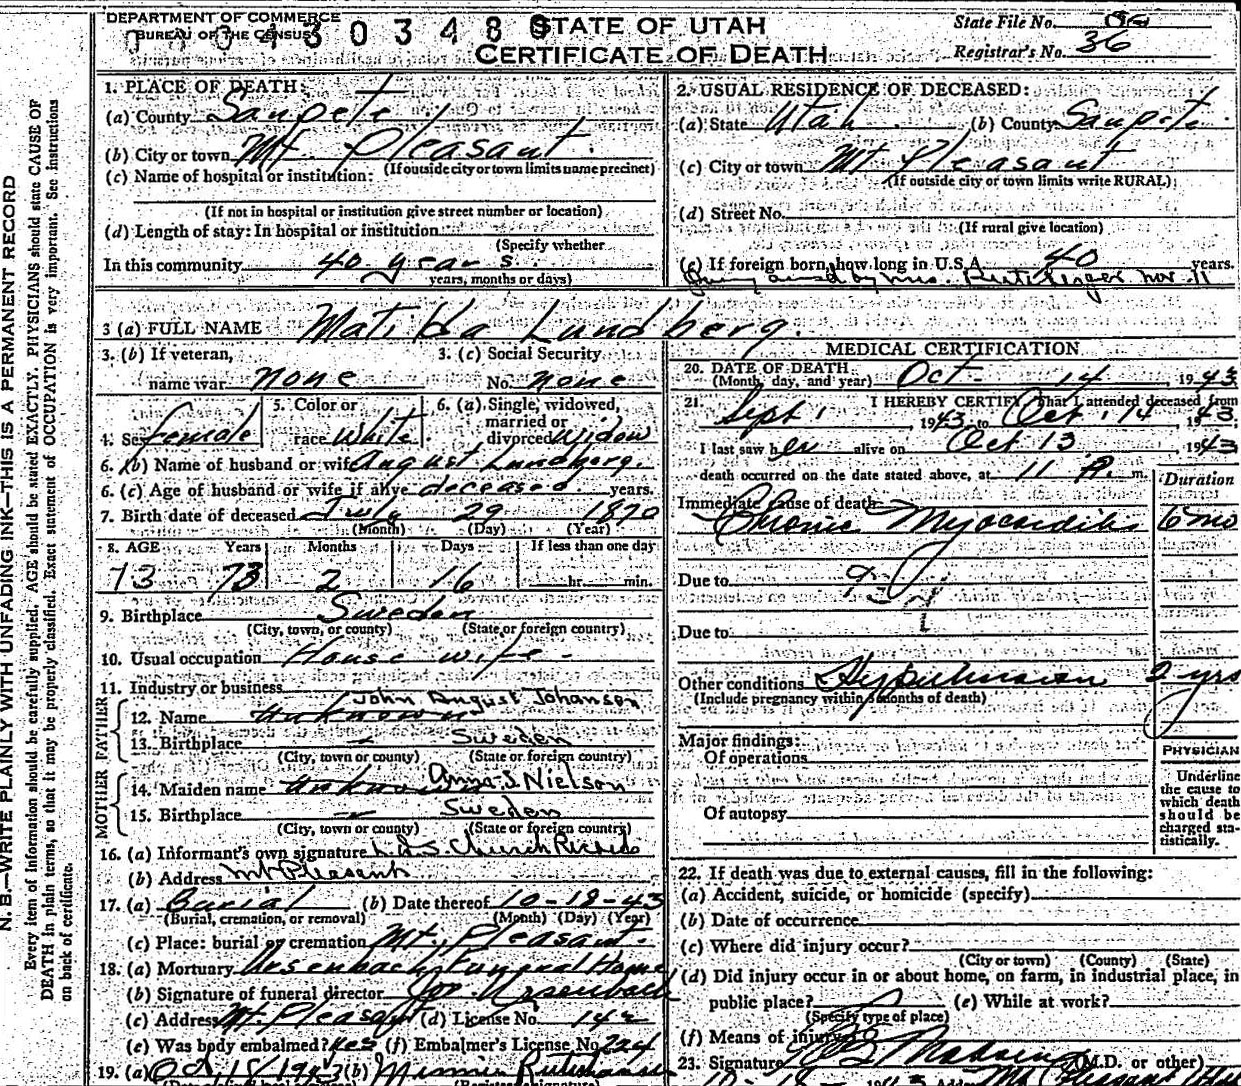 DEPARTMENT OF COMMERCE
BUREAU OF THE CENSUS
4303480
STATE OF UTAH
CERTIFICATE OF DEATH
State File No.
Registrar's No. 36
N. B.—WRITE PLAINLY WITH UNFADING INK—THIS IS A PERMANENT RECORD
Every item of information should be carefully supplied. AGE should be stated EXACTLY. PHYSICIANS should state CAUSE OF
DEATH in plain terms, so that it may be properly classified. Exact statement of OCCUPATION is very important. See instructions
on back of certificate.
1. PLACE OF DEATH:
(a) County Sanpete
(b) City or town Mt Pleasant.
(If outside city or town limits name precinct)
(c) Name of hospital or institution:
(If not in hospital or institution give street number or location)
(d) Length of stay: In hospital or institution
(Specify whether
In this community 40 years.
years, months or days)
2. USUAL RESIDENCE OF DECEASED:
(a) State Utah (b) County Sanpete.
(c) City or town Mt Pleasant
(If outside city or town limits write RURAL)
(d) Street No.
(If rural give location)
(e) If foreign born, how long in U.S.A. 40 years.
3 (a) FULL NAME Matilda Lundberg.
3. (b) If veteran,
name war none
3. (c) Social Security
No. none
4. Sex female
5. Color or
race White
6. (a) Single, widowed,
married or
divorced Widow
6. (b) Name of husband or wife August Lundberg.
6. (c) Age of husband or wife if alive deceased years.
7. Birth date of deceased July 29 1870
(Month) (Day) (Year)
8. AGE Years Months Days If less than one day
73 73 2 16 hr. min.
9. Birthplace Sweden
(City, town, or county) (State or foreign country)
10. Usual occupation House wife.
11. Industry or business
FATHER
John August Johanson
12. Name Unknown
13. Birthplace — Sweden
(City, town or county) (State or foreign country)
MOTHER
14. Maiden name Unknown Anna S Nielson
15. Birthplace — Sweden
(City, town or county) (State or foreign country)
16. (a) Informant's own signature L.D.S. Church Records
(b) Address Mt Pleasant
17. (a) Burial (b) Date thereof 10-18-43
(Burial, cremation, or removal) (Month) (Day) (Year)
(c) Place: burial or cremation Mt. Pleasant.
18. (a) Mortuary Ursenbach Funeral Home
(b) Signature of funeral director Joe Ursenbach
(c) Address Mt. Pleasant (d) License No. 142
(e) Was body embalmed? Yes (f) Embalmer's License No. 224
19. (a) Oct, 18 1943 (b) Minnie
MEDICAL CERTIFICATION
20. DATE OF DEATH
(Month, day, and year) Oct. 14, 1943
21. I HEREBY CERTIFY That I attended deceased from
Sept 1 1943, to Oct, 14 1943;
I last saw her alive on Oct 13, 1943
death occurred on the date stated above, at 11 P. m.
Duration
Immediate cause of death
Chronic Myocarditis 6 mo
Due to
Due to
Other conditions Hypertension 2 yrs
(Include pregnancy within 3 months of death)
Major findings:
Of operations
Of autopsy
PHYSICIAN
Underline
the cause to
which death
should be
charged sta-
tistically.
22. If death was due to external causes, fill in the following:
(a) Accident, suicide, or homicide (specify)
(b) Date of occurrence
(c) Where did injury occur?
(City or town) (County) (State)
(d) Did injury occur in or about home, on farm, in industrial place, in
public place? (e) While at work?
(Specify type of place)
(f) Means of injury
23. Signature Madsen (M.D. or other)